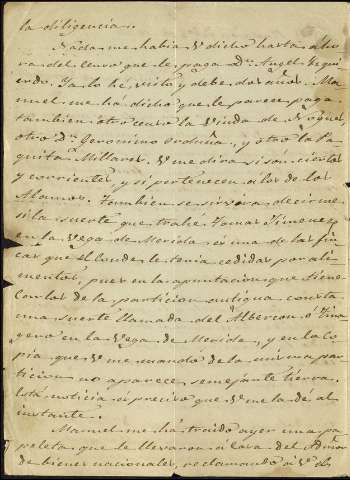 la diligencia.
Nada me habia V dicho hasta aho-
ra del censo que le paga Dn. Angel Izqui-
erdo. Ya lo hé visto y debe dos años. Ma-
nuel me ha dicho que le parece paga
tambien otro censo la Viuda de
otro Dn. Geronimo Orduña, y otro la Pa-
quita Millanes. V me dira si son ciertos
y corrientes, y si pertenecen á los de los
Tambien se servira decirme
si la suerte que trahé Tomas Ximenez
en la Vega de Meriola es una de las fin-
cas que el Conde le tenia cedidas por ali-
mentos, pues en la apuntacion que tiene
con los de la particion antigua consta
una suerte llamada del Albercon ó
en la Vega de Meriola, y en la co-
pia que V me mando de la misma par-
ticion no aparece semejante tierra.
Esta noticia es preciso que V me la dé al
instante.
Manuel me há traido ayer una pa-
peleta que le llevaron á casa del Admor
de bienes nacionales, reclamando á V